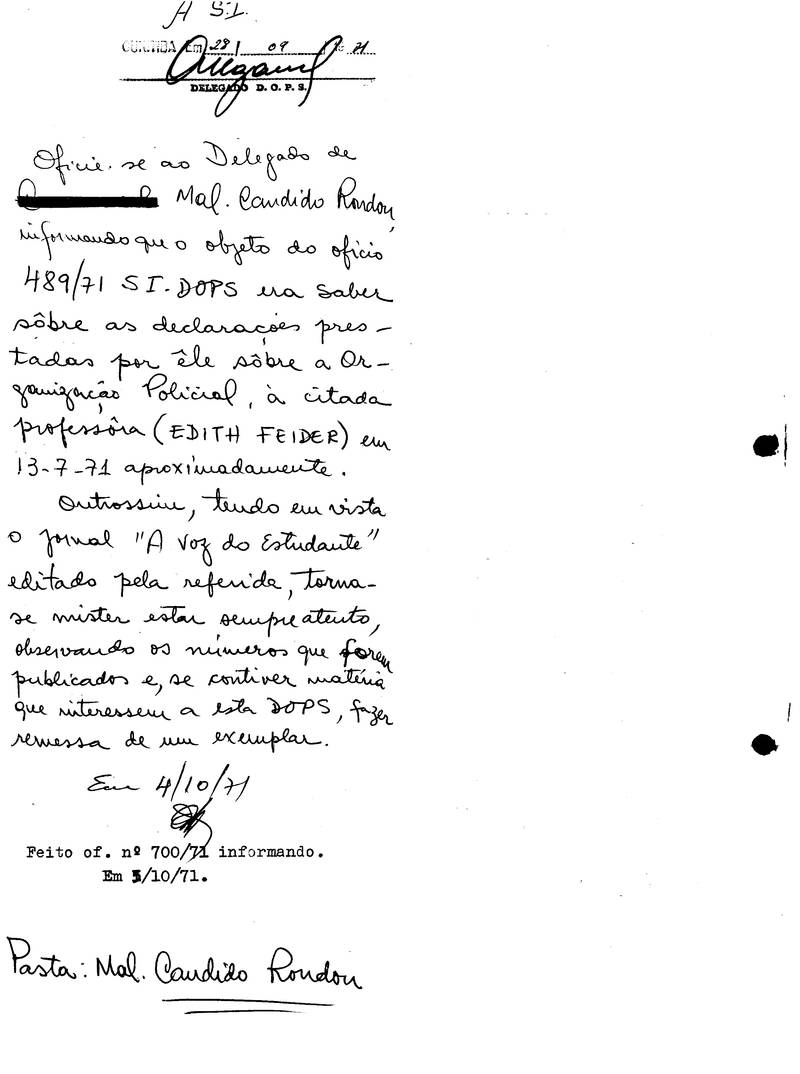 A S.I.
CURITIBA Em 28 / 09 / 71
DELEGADO D. O. P. S.
Oficie-se ao Delegado de
Mal. Candido Rondon,
informando que o objeto do ofício
489/71 SI-DOPS era saber
sôbre as declarações pres-
tadas por êle sôbre a Or-
ganização Policial, à citada
professôra (EDITH FEIDER) em
13-7-71 aproximadamente.
Outrossim, tendo em vista
o jornal "A Voz do Estudante"
editado pela referida, torna-
se mister estar sempre atento,
observando os números que forem
publicados e, se contiver matéria
que interessem a esta DOPS, fazer
remessa de um exemplar.
Em 4/10/71
Feito of. nº 700/71 informando.
Em 5/10/71.
Pasta: Mal. Candido Rondon